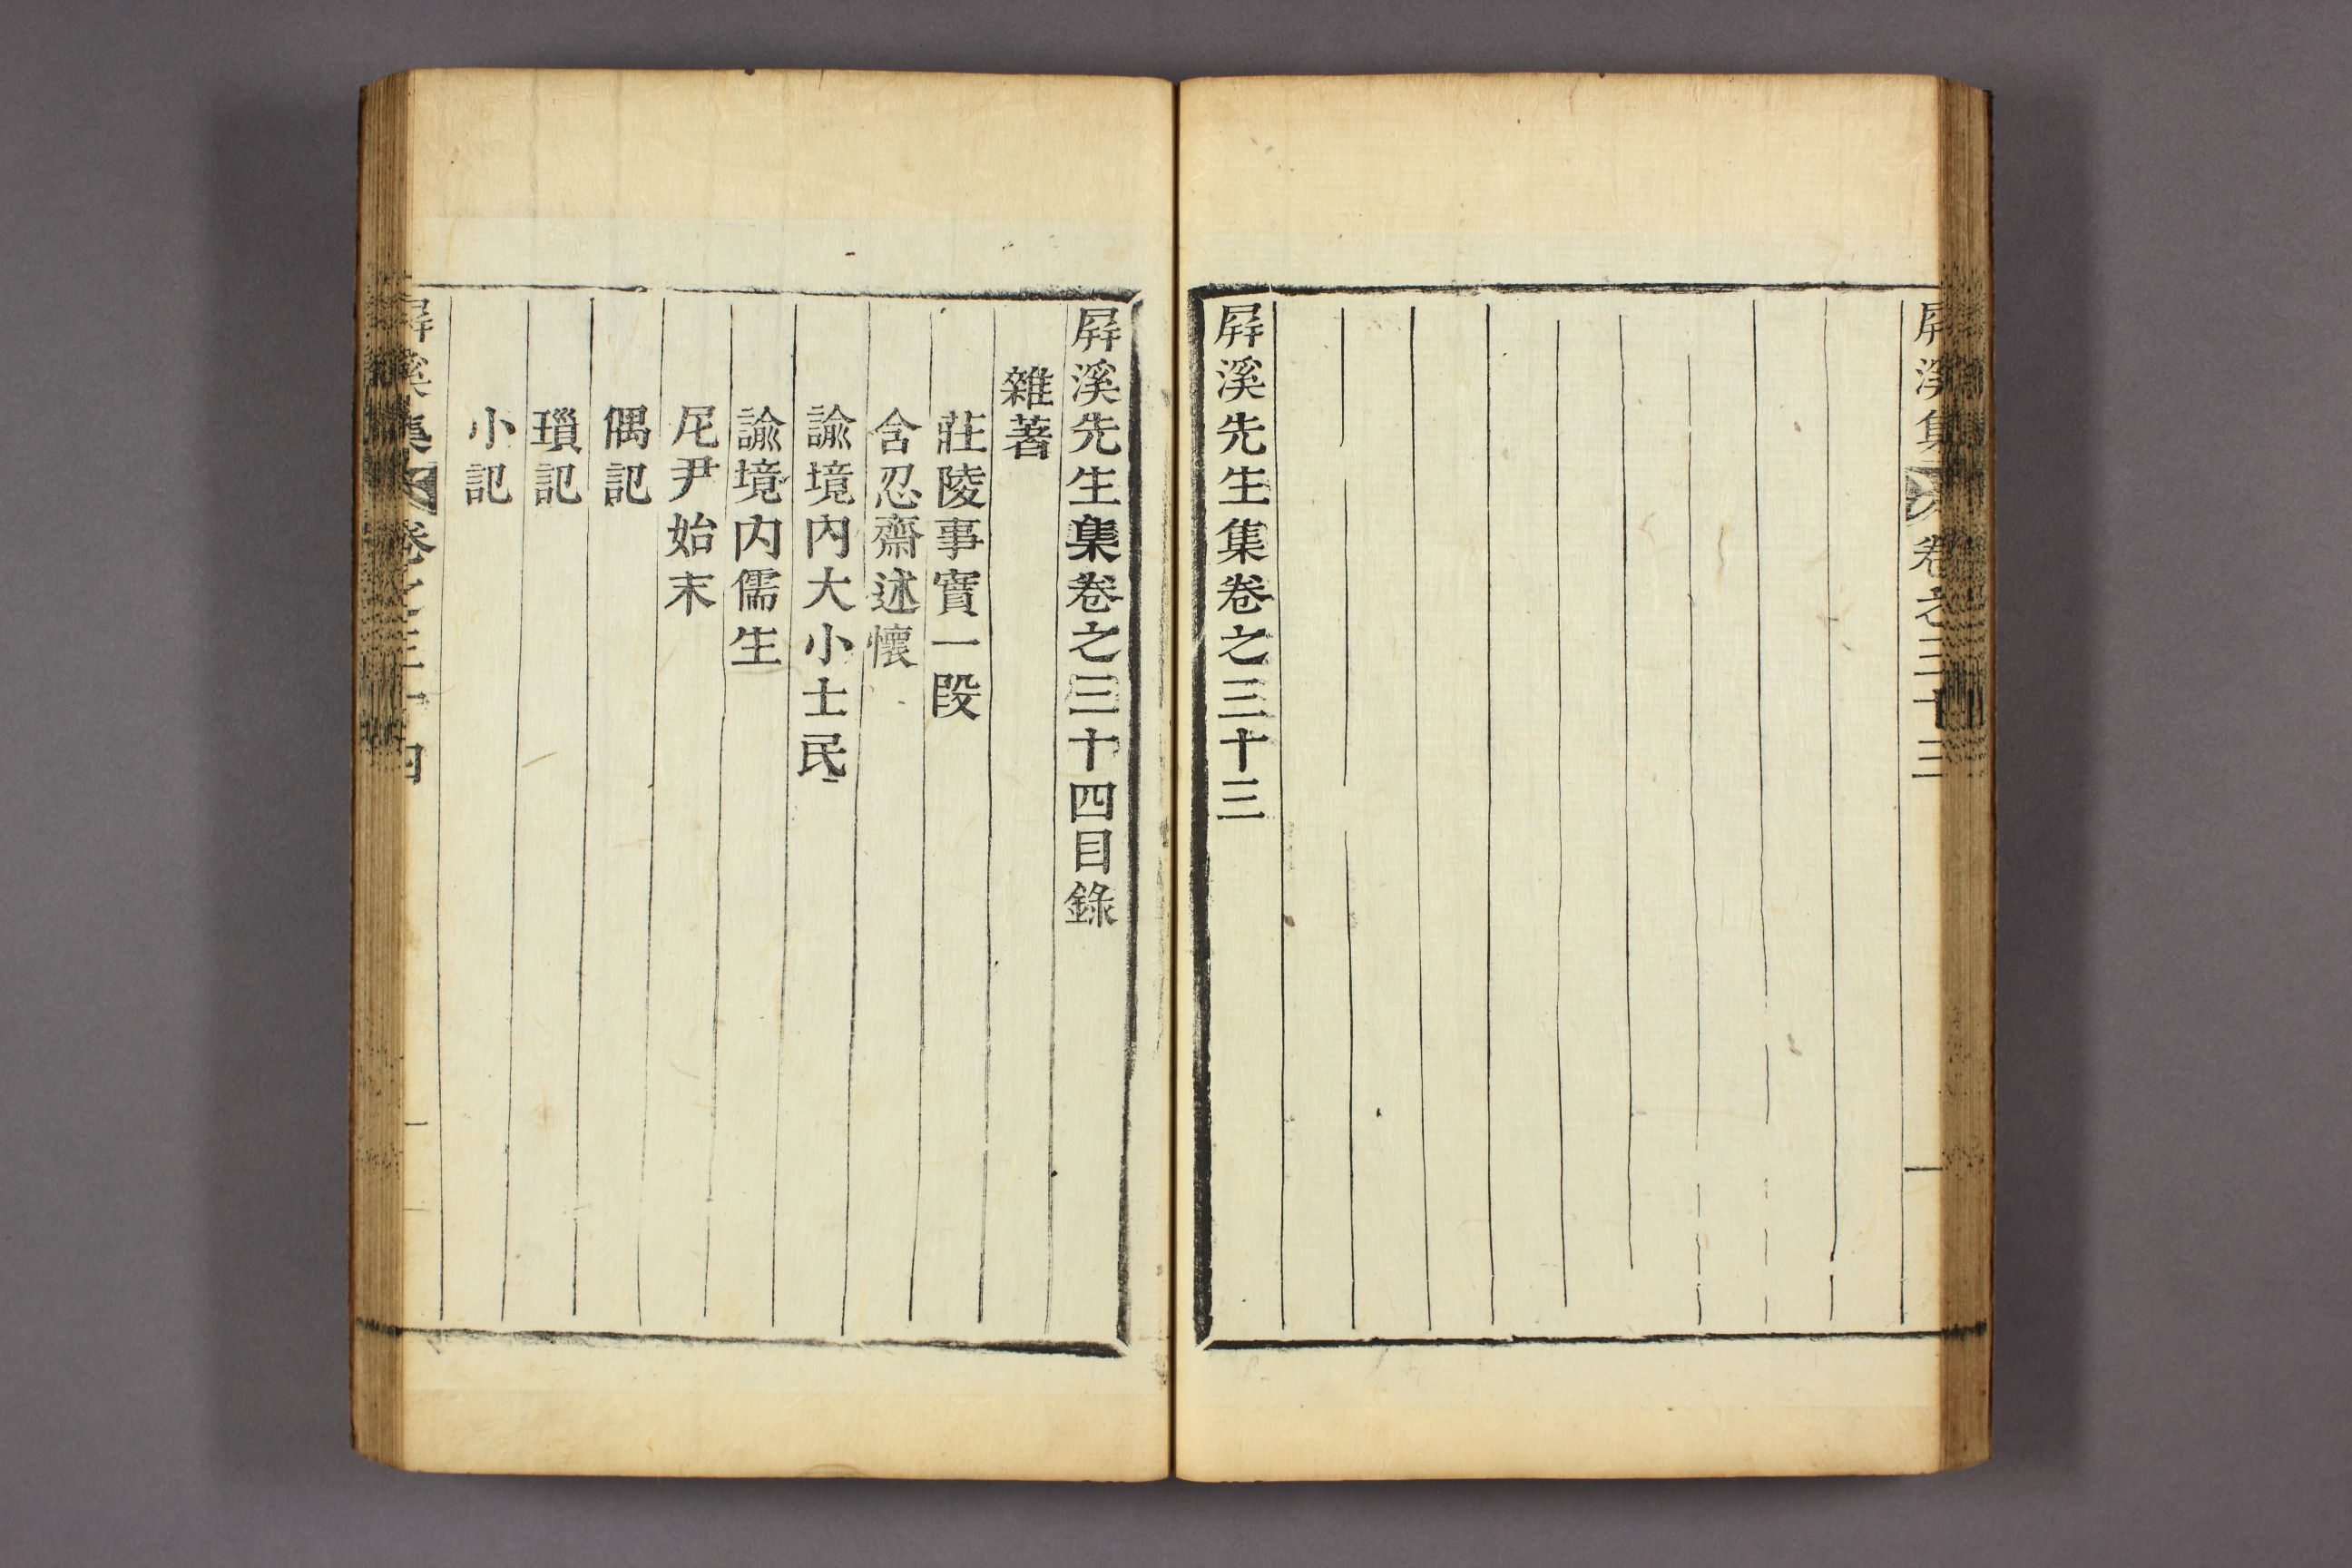 屛溪集 卷之三十三
屛溪先生集卷之三十三
屛溪先生集卷之三十四目錄
雜著
莊陵事實一段
含忍齋述懷
諭境內大小士民
諭境内儒生
尼尹始末
偶記
瑣記
小記
屛溪集 卷之三十四